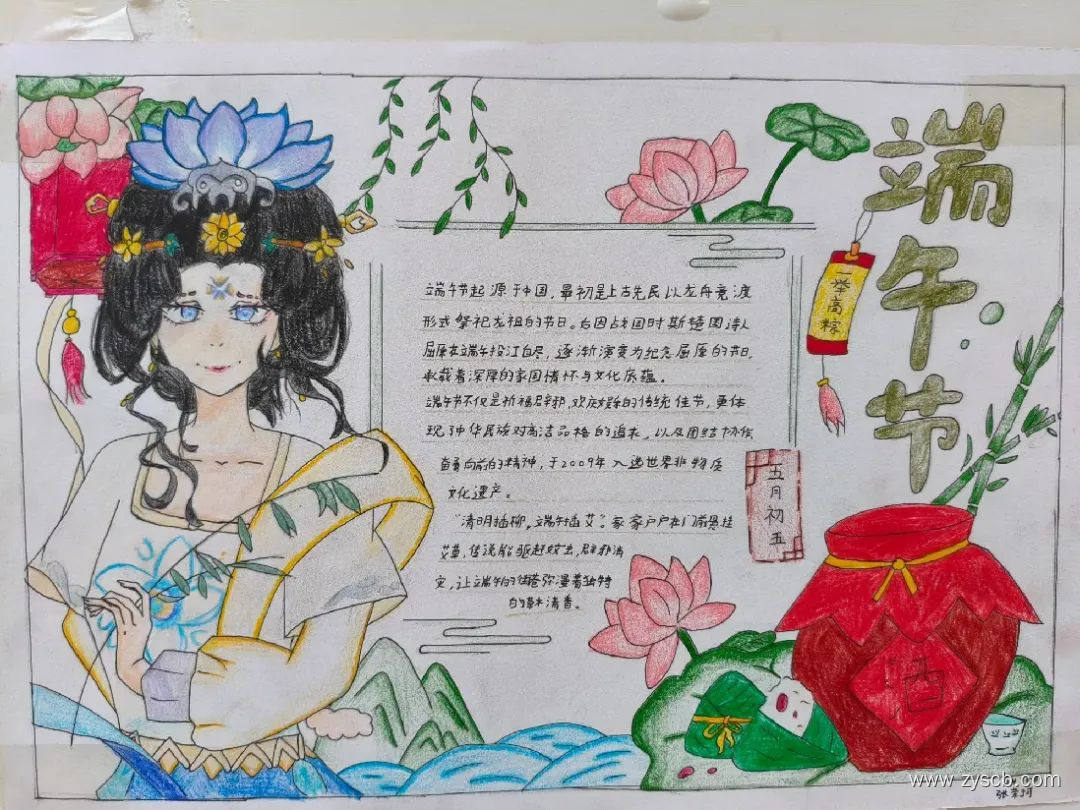 端午节
一举高粽
端午节起源于中国，最初是上古先民以龙舟竞渡
形式祭祀龙祖的节日。后因战国时期楚国诗人
屈原在端午投江自尽，逐渐演变为纪念屈原的节日
承载着深厚的家国情怀与文化底蕴。
端午节不仅是祈福辟邪，欢庆娱乐的传统佳节，更体
现了中华民族对高洁品格的追求，以及团结协作
奋勇向前的精神，于2009年入选世界非物质
文化遗产。
"清明插柳，端午插艾"。家家户户在门前悬挂
艾草，传说能驱赶蚊虫，辟邪消
灾，让端午的街巷弥漫着独特
的草木清香。
五月初五
酒
www.zyscb.com